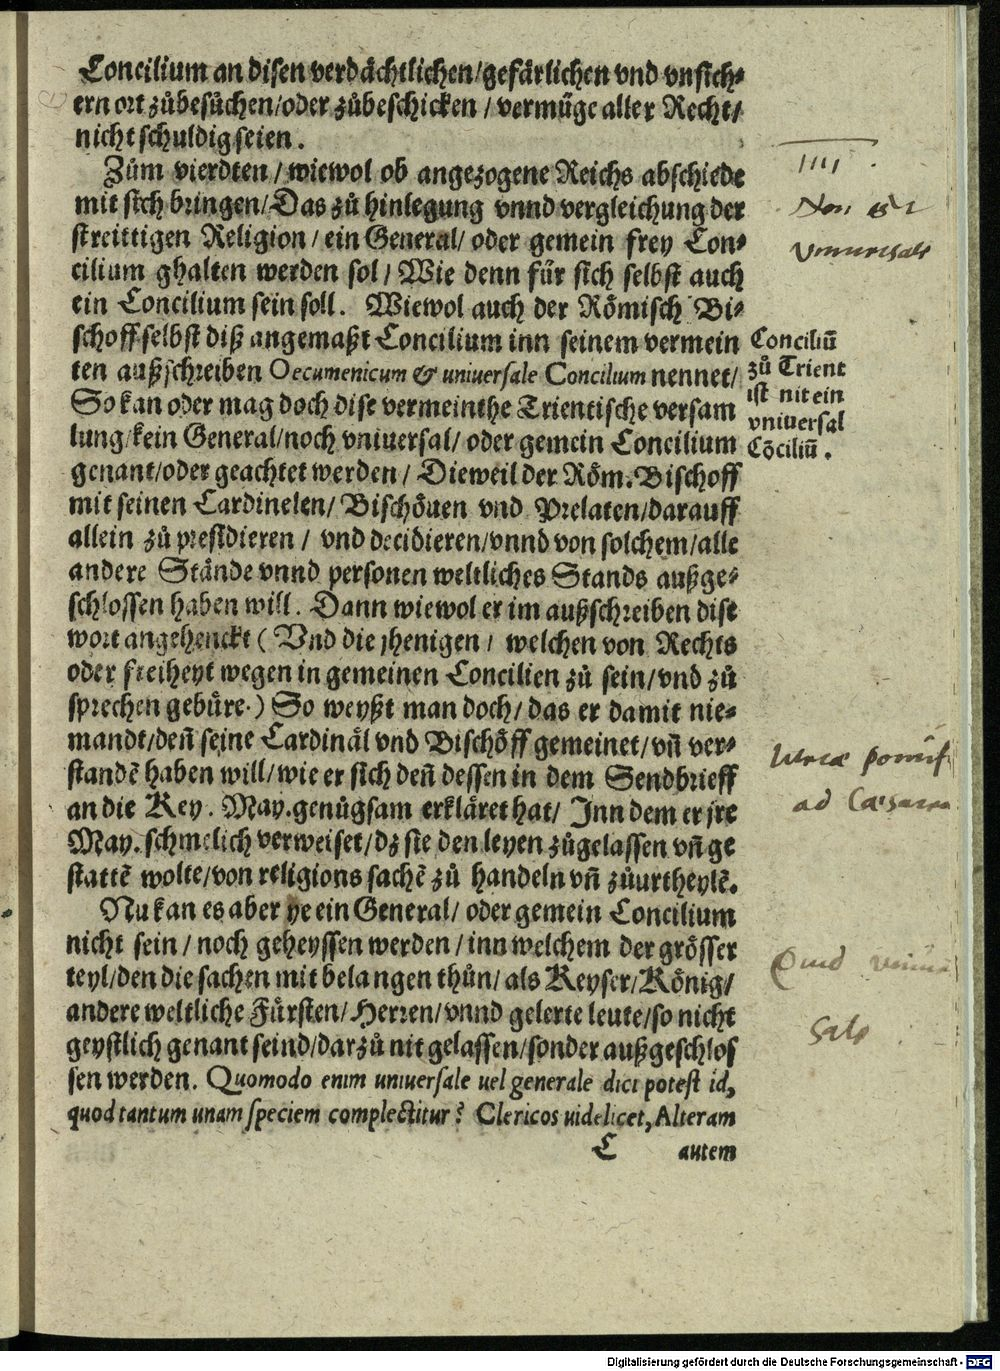 Concilium an disen verdächtlichen/gefärlichen vnd vnsich⸗
ern ort zůbesůchen/oder zůbeschicken / vermüge aller Recht/
nicht schuldig seien.
Zům vierdten / wiewol ob angezogene Reichs abschiede
mit sich bringen/Das zů hinlegung vnnd vergleichung der
streittigen Religion / ein General/ oder gemein frey Con⸗
cilium ghalten werden sol / Wie denn für sich selbst auch
ein Concilium sein soll. Wiewol auch der Römisch Bi⸗
schoff selbst diß angemaßt Concilium inn seinem vermein
ten außschreiben Oecumenicum & uniuersale Concilium nennet/
So kan oder mag doch dise vermeinthe Trientische versam
lung/kein General/noch vniuersal/ oder gemein Concilium
genant/oder geachtet werden / Dieweil der Röm. Bischoff
mit seinen Cardinelen/ Bischöuen vnd Prelaten/darauff
allein zů presidieren / vnd decidieren/vnnd von solchem/alle
andere Stände vnnd personen weltliches Stands außge⸗
schlossen haben will. Dann wiewol er im außschreiben dise
wort angehenckt ( Vnd die jhenigen / welchen von Rechts
oder freiheyt wegen in gemeinen Concilien zů sein/vnd zů
sprechen gebüre.) So weyßt man doch/ das er damit nie⸗
mandt/deñ seine Cardinäl vnd Bischöff gemeinet/vñ ver⸗
standē haben will/wie er sich deñ dessen in dem Sendbrieff
an die Key. May. genůgsam erkläret hat/ Inn dem er jre
May. schmelich verweiset/dz sie den leyen zůgelassen vñ ge
stattē wolte/von religions sachē zů handeln vñ zůurtheylē.
Nu kan es aber ye ein General/ oder gemein Concilium
nicht sein / noch geheyssen werden / inn welchem der grösser
teyl/den die sachen mit belangen thůn/ als Keyser/König/
andere weltliche Fürsten/ Herren/vnnd gelerte leute/so nicht
geystlich genant seind/darzů nit gelassen/sonder außgeschlos
sen werden. Quomodo enim uniuersale uel generale dici potest id,
quod tantum unam speciem complectitur? Clericos uidelicet, Alteram
C autem
IIII
Non est
Vniuersale
Conciliū
zů Trient
ist nit ein
vniuersal
Cōciliū.
pontif
ad Cæsarem
Quid
Digitalisierung gefördert durch die Deutsche Forschungsgemeinschaft - DFG